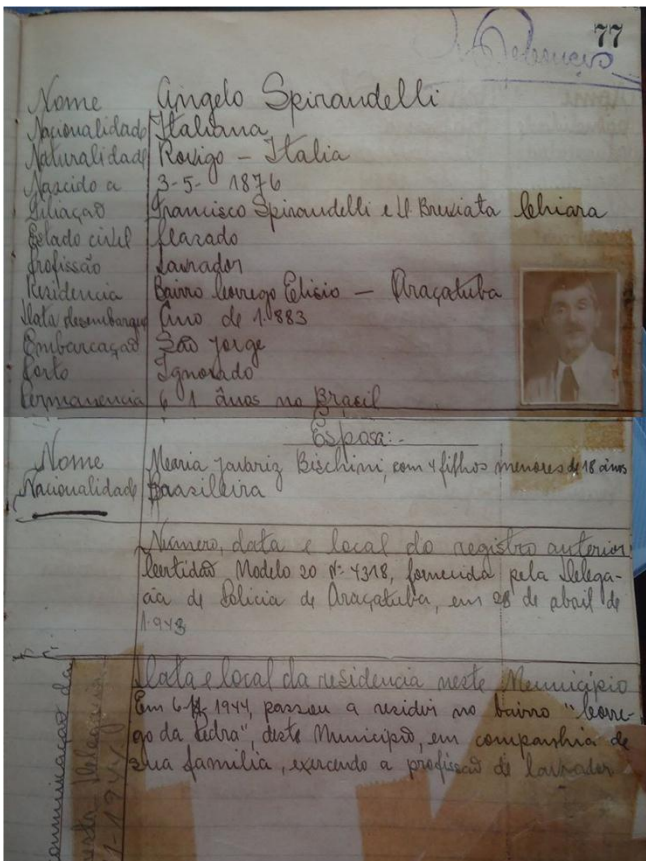 77
Nome Angelo Spirandelli
Nacionalidade Italiana
Naturalidade Rovigo - Italia
Nascido a 3-5- 1876
Filiação Francisco Spirandelli e Chiara
Estado civil Cazado
Profissão Lavrador
Residencia Bairro Corrego Elisio - Araçatuba
Data desembarque Ano de 1.883
Embarcação São Jorge
Porto Ignorado
Permanencia 61 ânos no Brasil
Esposa:-
Nome Maria Bischini, com 4 filhos menores de 18 ânos
Nacionalidade Brasileira
Numero, data e local do registro anterior
Certidão Modelo 20 Nº 4318, fornecida pela Delega-
cia de Policia de Araçatuba, em 28 de abril de
1.943
Data e local da residencia neste Municipio
Em 1944, passou a residir no bairro "Corre-
go da Pedra", deste Municipio, em companhia de
sua familia, exercendo a profissão de lavrador